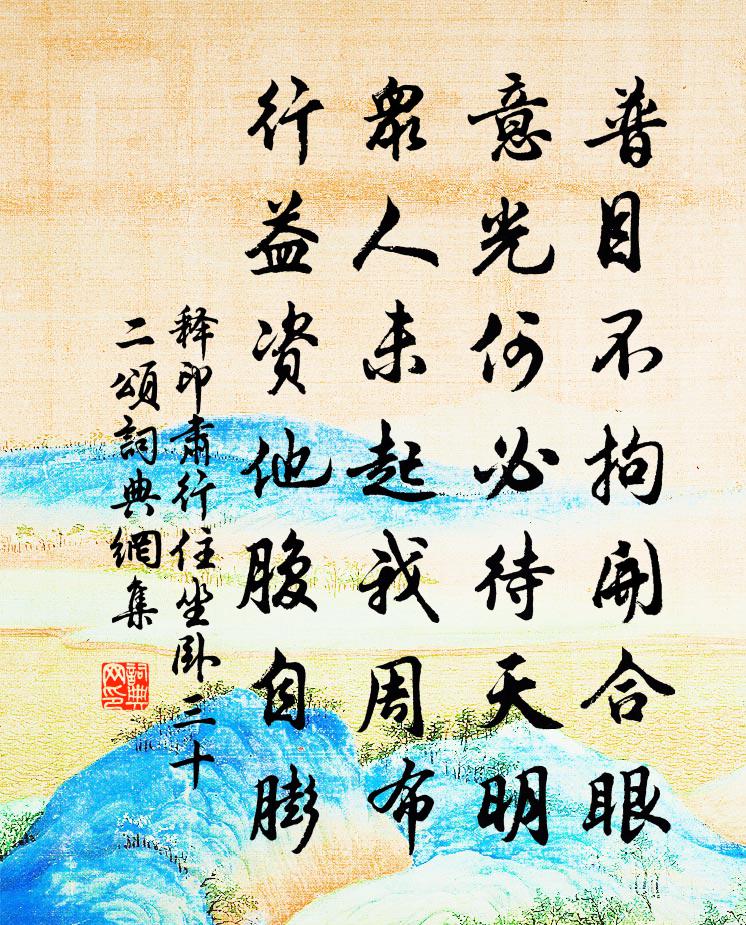 普目不拘開合眼
意光何必待天明
衆人未起我周布
行益资他腹自膨
释印肃行住坐卧三十
二頌詞典網集
詞典
网印